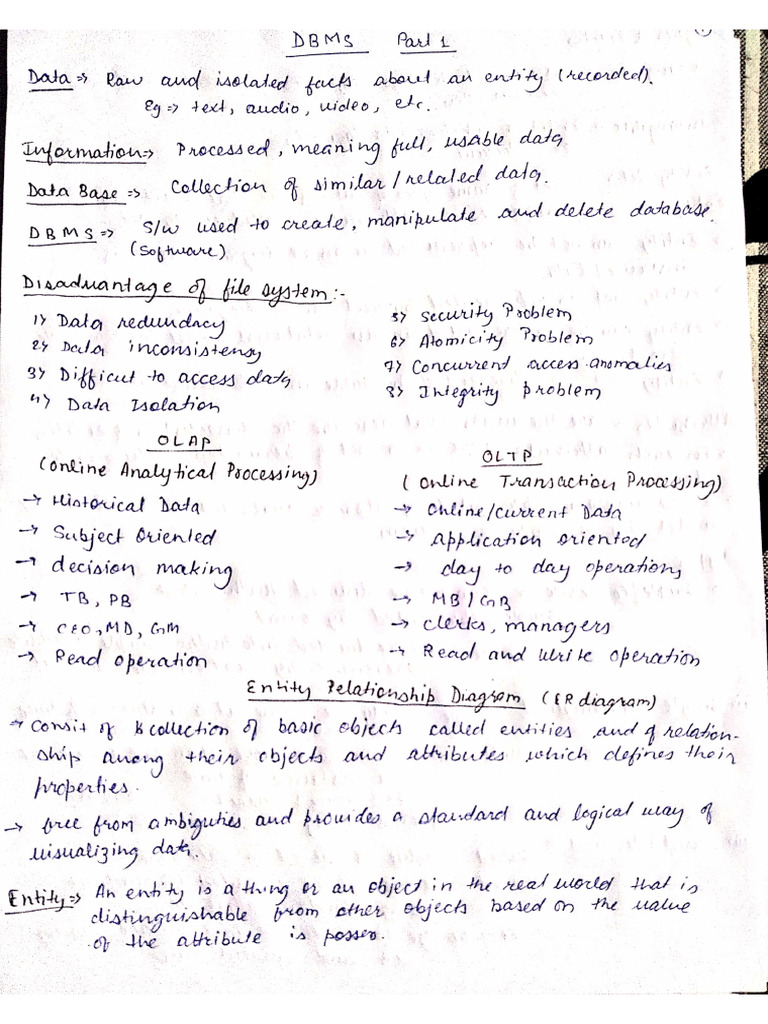 DBMS Part 1
Data => Raw and isolated facts about an entity (recorded).
Eg => text, audio, video, etc.
Information => Processed, meaning full, usable data
Data Base => Collection of similar/related data.
DBMS => S/w used to create, manipulate and delete database.
(Software)
Disadvantage of file system:-
1) Data redundacy
2) Data inconsistensy
3) Difficut to access data
4) Data Isolation
5) Security Problem
6) Atomicity Problem
7) Concurrent access anomalies
8) Integrity problem
OLAP
(Online Analytical Processing)
→ Historical Data
→ Subject Oriented
→ decision making
→ TB, PB
→ CEO, MD, GM
→ Read operation
OLTP
(Online Transaction Processing)
→ Online/Current Data
→ Application oriented
→ day to day operations
→ MB/GB
→ Clerks, managers
→ Read and Write operation
Entity Relationship Diagram (ER diagram)
→ Consit of collection of basic objects called entities and of relation-
ship among their objects and attributes which defines their
properties.
→ free from ambiguties and provides a standard and logical way of
visualizing data.
Entity => An entity is a thing or an object in the real world that is
distinguishable from other objects based on the value
of the attribute is posses.